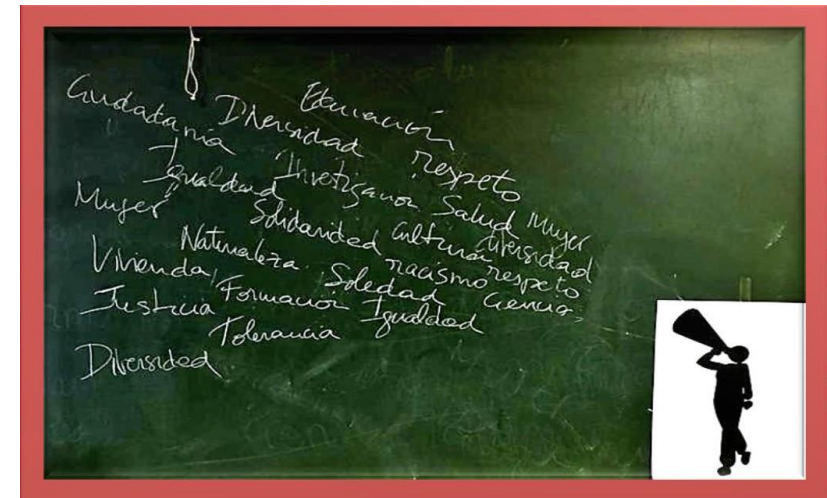 Educación
Ciudadanía Diversidad respeto
Igualdad Investigación Salud Mujer
Mujer Solidaridad Cultura diversidad
Naturaleza racismo respeto
Vivienda Soledad Ciencia
Justicia Formación Igualdad
Tolerancia
Diversidad